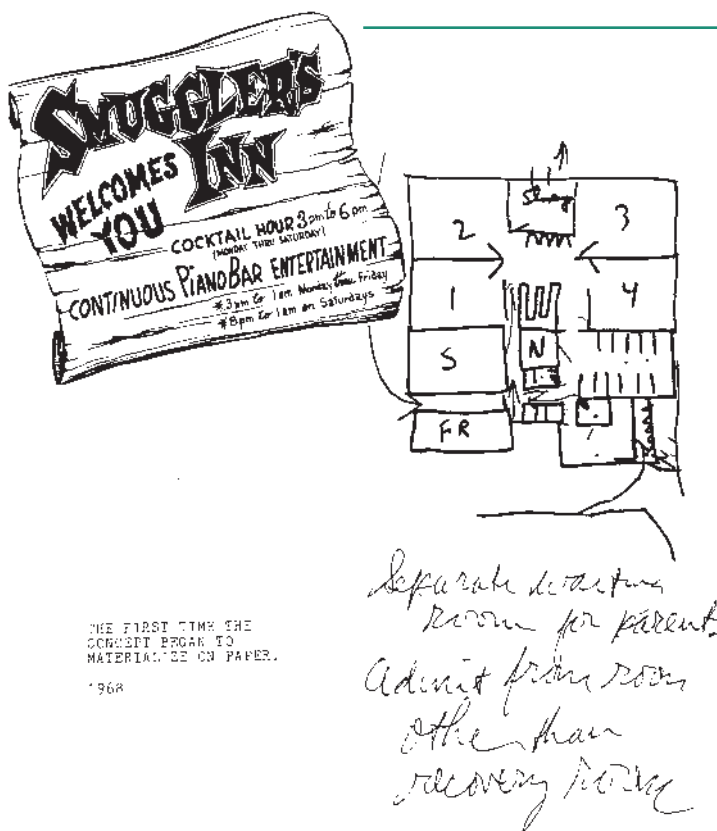 SMUGGLER'S
INN
WELCOMES
YOU
COCKTAIL HOUR 3pm to 6pm
(MONDAY THRU SATURDAY)
CONTINUOUS PIANO BAR ENTERTAINMENT
*3pm to 1am Monday thru Friday
*8pm to 1am on Saturdays
2
3
1
4
S
N
FR
THE FIRST TIME THE
CONCEPT BEGAN TO
MATERIALIZE ON PAPER.
1968
Separate waiting
room for parents
Admit from room
other than
recovery room